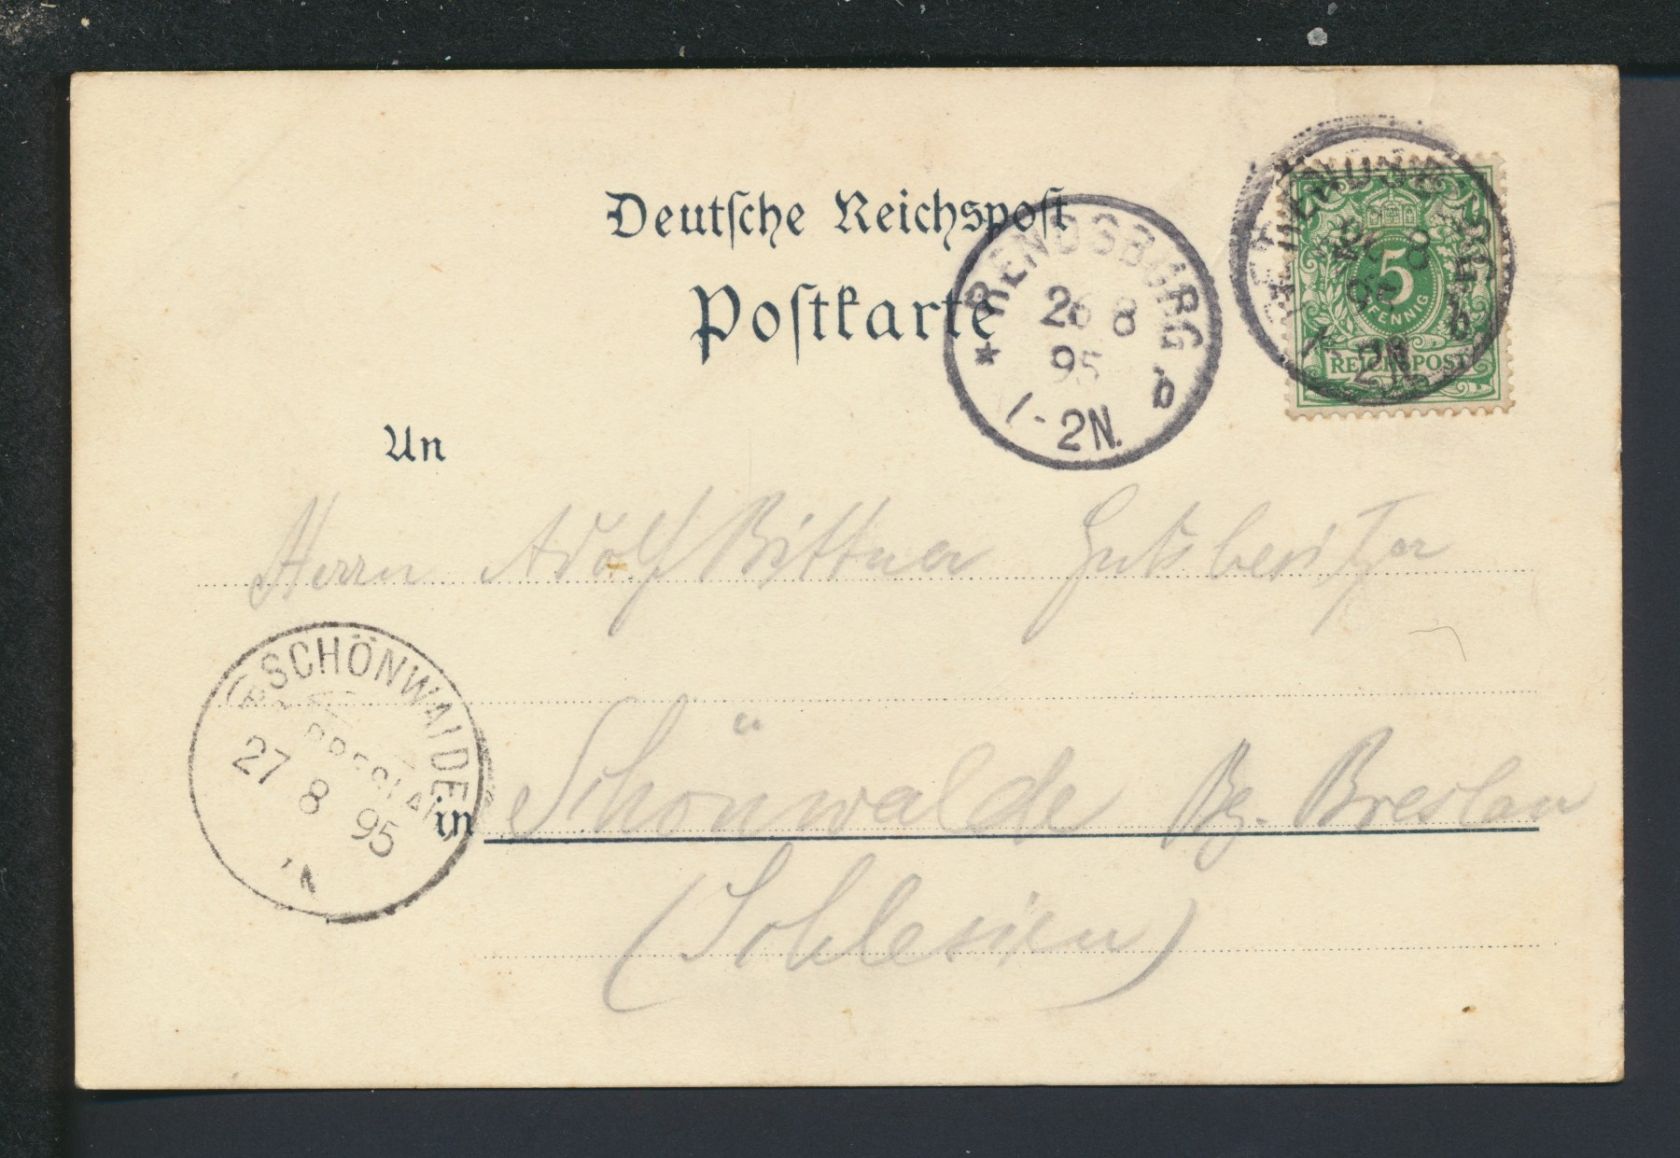 Deutsche Reichspost
Postkarte
RENDSBURG
26 8
95
1-2N.
b
RENDSBURG
8
95
2N.
b
5
PFENNIG
REICHSPOST
An
Herrn Adolf Bittner Gutsbesitzer
SCHÖNWALDE
BRESLAU
27 8 95
N
in Schönwalde Bz. Breslau
(Schlesien)